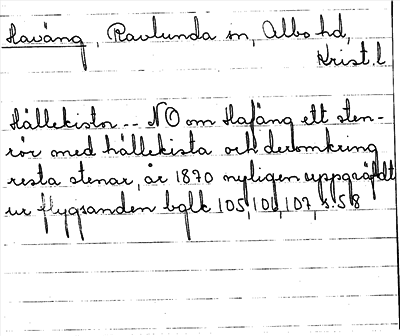 Haväng, Ravlunda sn, Albo hd,
Krist. l
Hällekistn -- NO om Hafäng ett sten-
rör med hällekista och deromkring
resta stenar, år 1870 nyligen uppgräfdt
ur flygsanden bglk 105, 107, s. 58